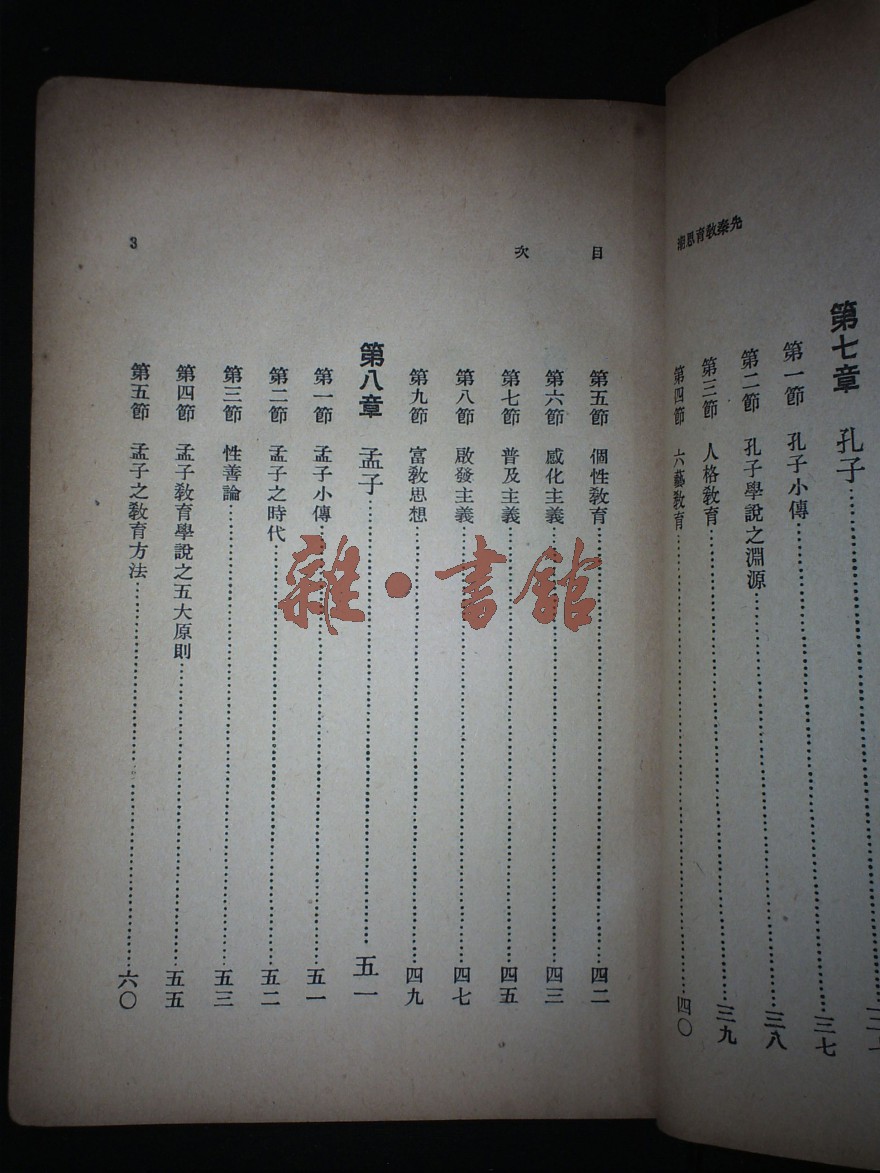 先秦教育思想
第七章 孔子
第一節 孔子小傳 三七
第二節 孔子學說之淵源 三八
第三節 人格教育 三九
第四節 六藝教育 四〇
目次
3
第五節 個性教育 四二
第六節 感化主義 四三
第七節 普及主義 四五
第八節 啟發主義 四七
第九節 富教思想 四九
第八章 孟子 五一
第一節 孟子小傳 五一
第二節 孟子之時代 五二
第三節 性善論 五三
第四節 孟子教育學說之五大原則 五五
第五節 孟子之教育方法 六〇
雜·書館